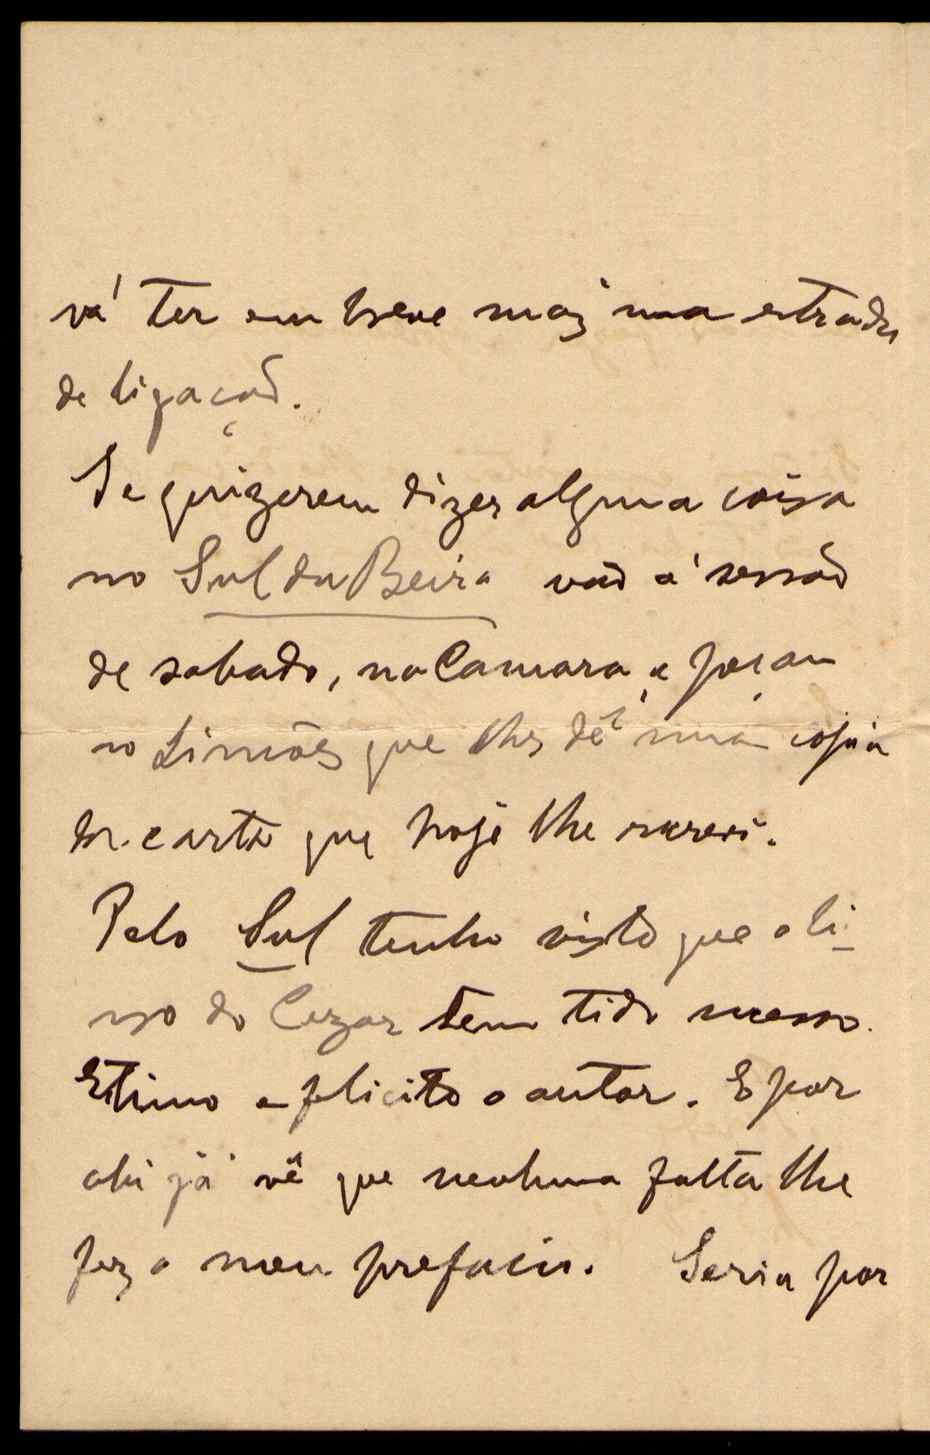 vá ter em breve mais uma estrada
de ligação.
Se quizerem dizer alguma coisa
no Sul da Beira vão á sessão
de sabado, na Camara, e peçam
ao Simões que lhes dê uma copia
da carta que hoje lhe escrevi.
Pelo Sul tenho visto que o li-
vro do Cezar tem tido sucesso.
Estimo e felicito o autor. E por
ahi já vê que nenhuma falta lhe
fez o meu prefacio. Seria por